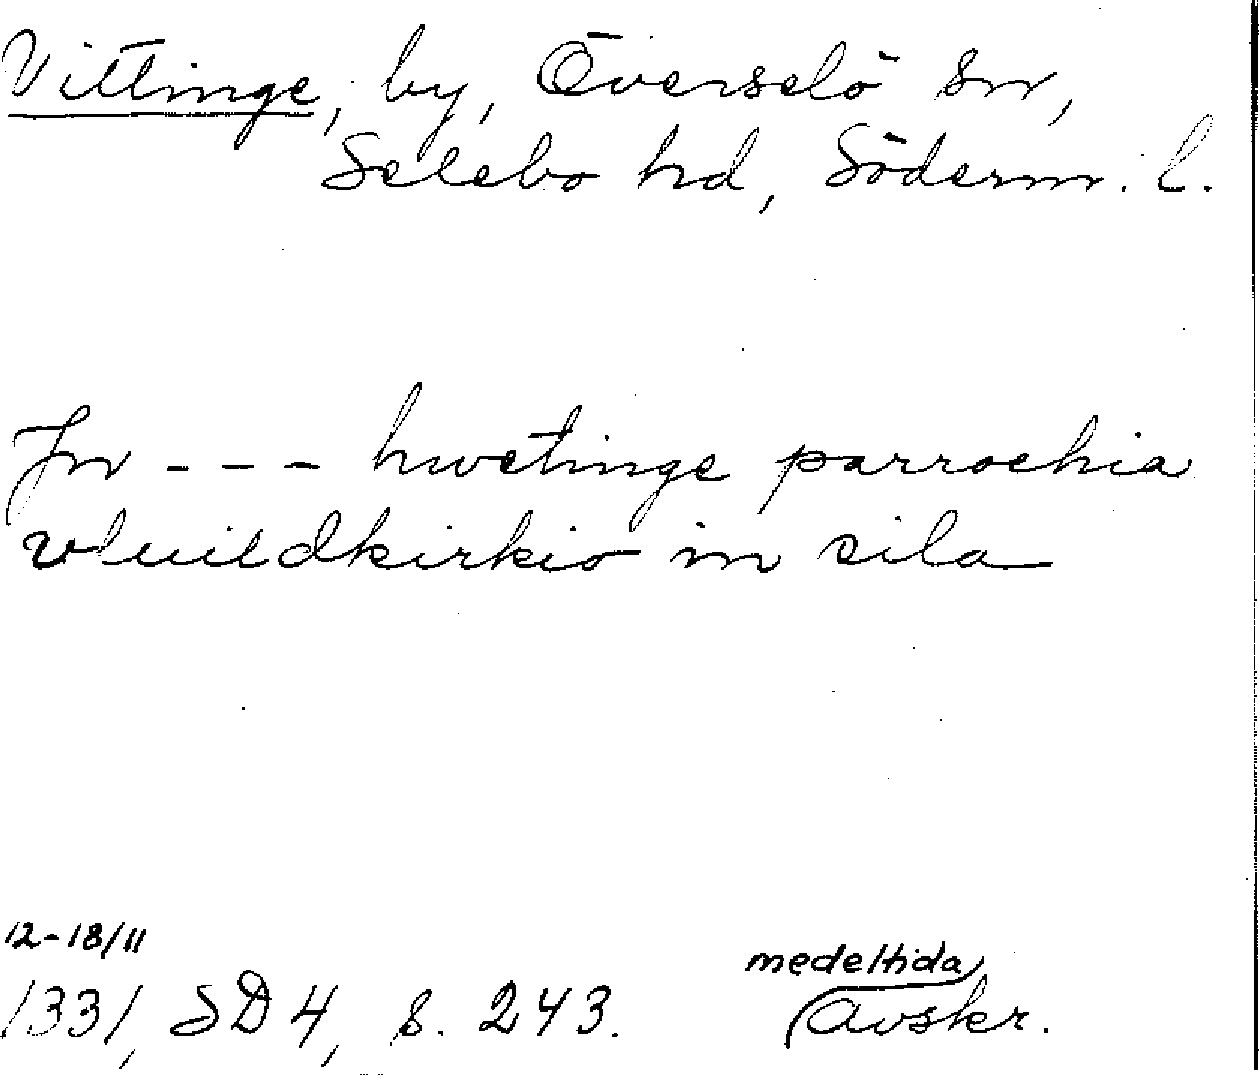 Vittinge, by, Överselö sn,
Selebo hd, Söderm. l.
In --- hwetinge parrochia
in sila
12-18/11
medeltida
1331, SD 4, s. 243. Avskr.